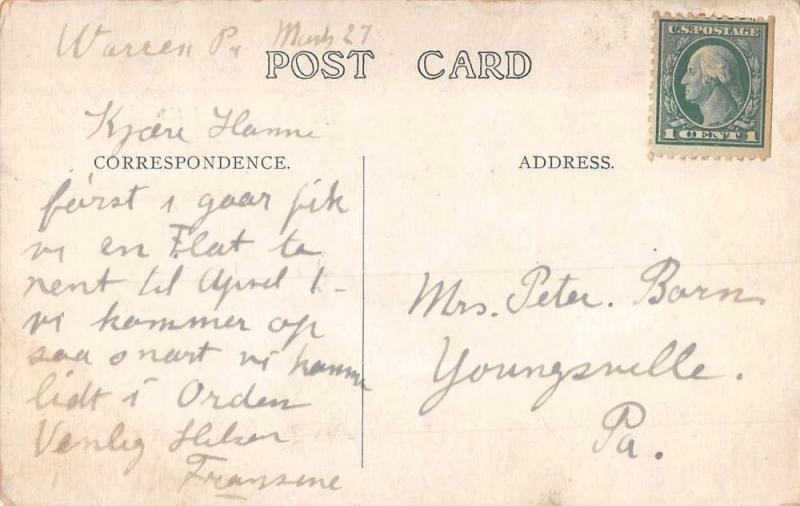 Warren Pa March 27
POST CARD
U.S. POSTAGE
1 CENT 1
Kjære Hanne
CORRESPONDENCE.
ADDRESS.
först i gaar fik
vi en Flat to
rent til April 1-
vi kommer op
saa snart vi komme
lidt i Orden
Venlig Hilsen
Fransine
Mrs. Peter. Born
Youngsville.
Pa.